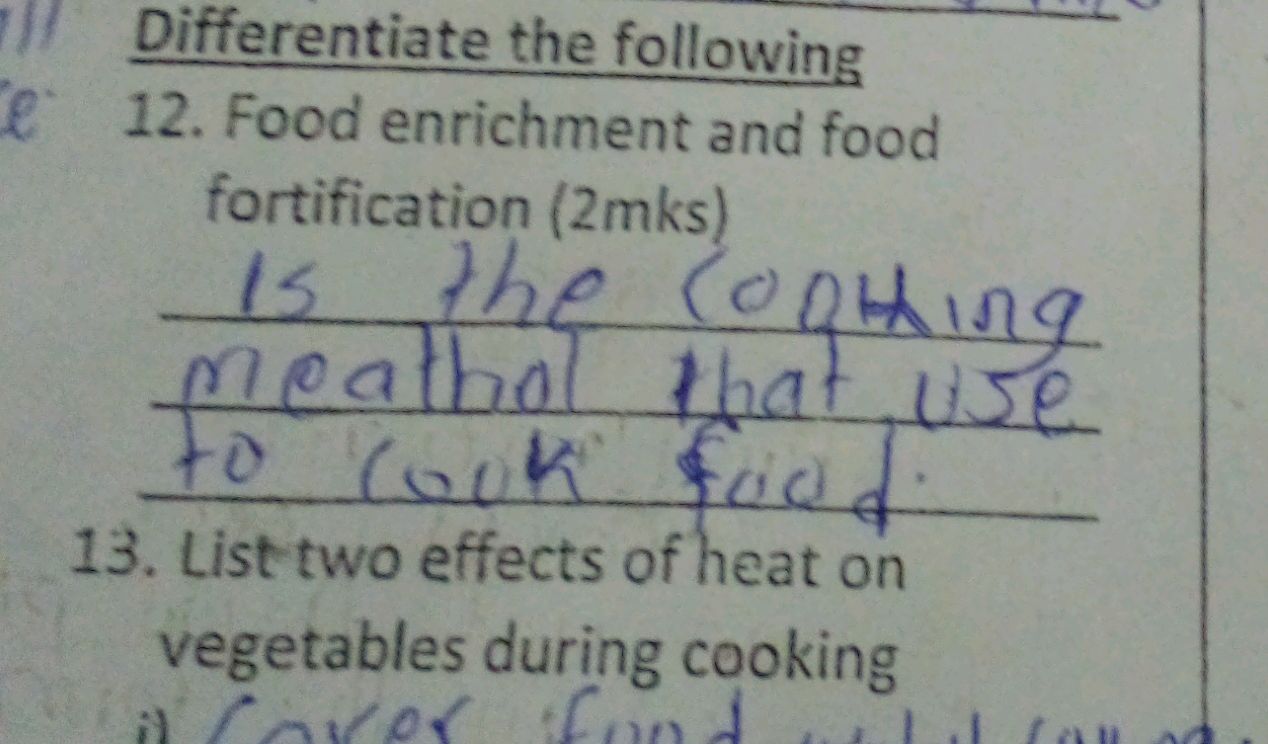 Differentiate the following
12. Food enrichment and food
fortification (2mks)
Is the cooking
meathol that use
to cook food.
13. List two effects of heat on
vegetables during cooking
i) Cover food